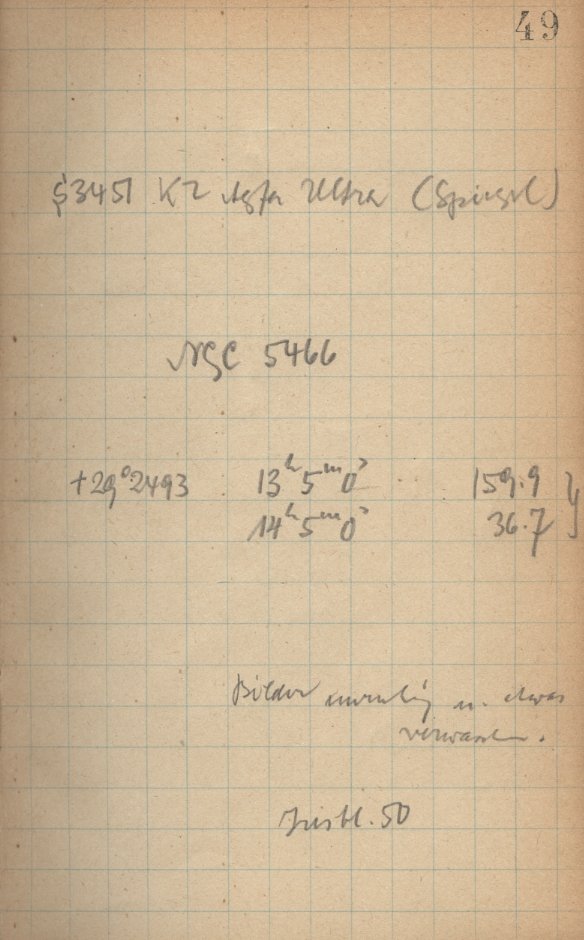 49
S3451 K2 Agfa Ultra (Spiegel)
NGC 5466
+29°2493 13ʰ5ᵐ0ˢ 159.9 }
14ʰ5ᵐ0ˢ 36.7
Bilder unruhig u. etwas
verwaschen.
Irisbl. 50